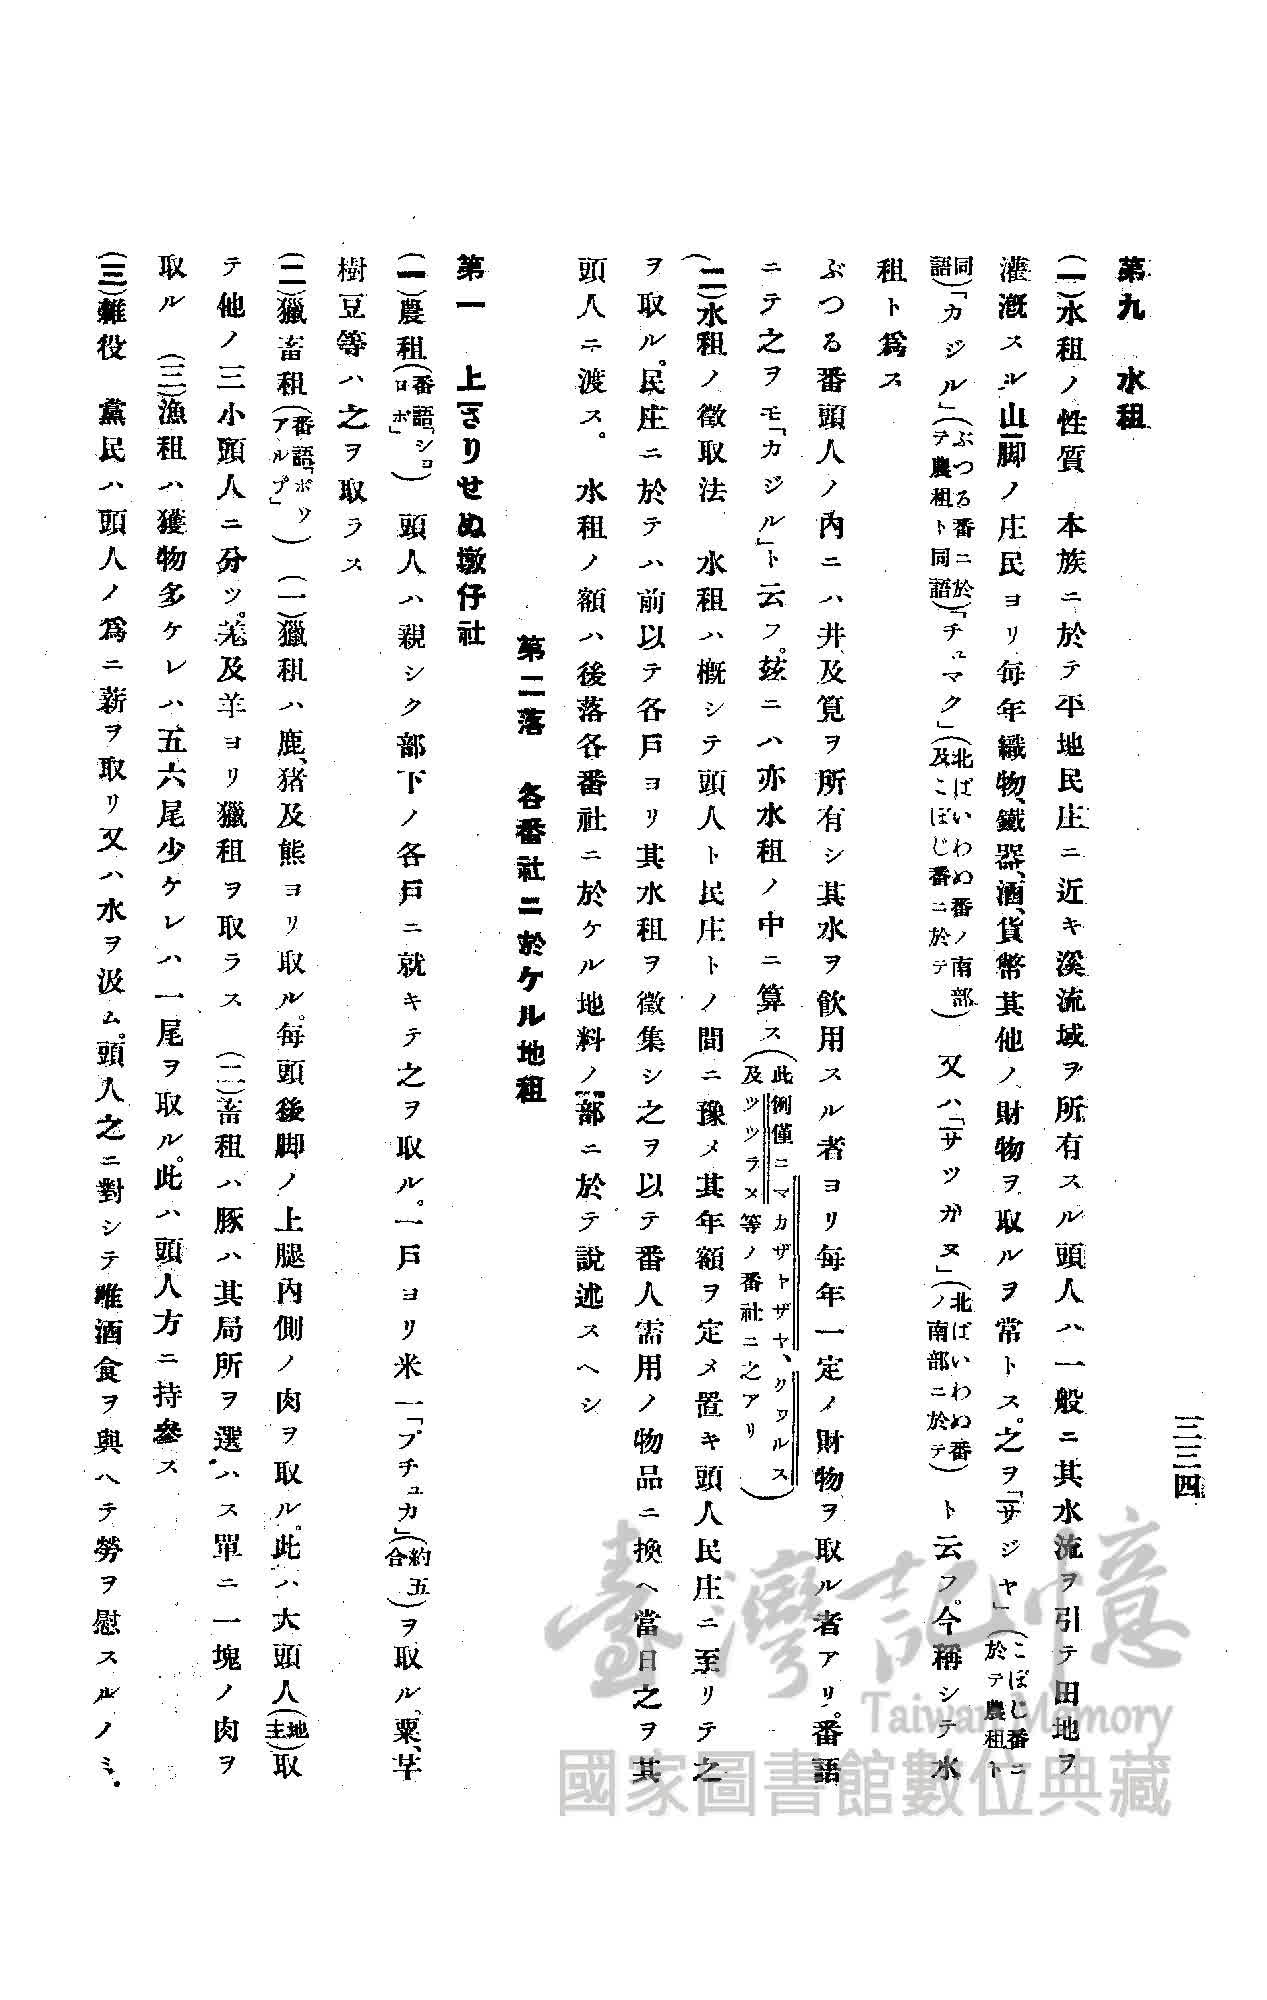 三三四
第九　水租
(一)水租ノ性質　本族ニ於テ平地民庄ニ近キ溪流域ヲ所有スル頭人ハ一般ニ其水流ヲ引テ田地ヲ
灌漑スル山脚ノ庄民ヨリ每年織物、鐵器、酒、貨幣其他ノ財物ヲ取ルヲ常トス。之ヲ「サジヤ」(こぼじ番ニ於テ農租ト
同語)「カジル」(ぶつる番ニ於テ農租ト同語)「チュマク」(北ぱいわぬ番ノ南部及こぼじ番ニ於テ)　又ハ「サツガヌ」(北ぱいわぬ番ノ南部ニ於テ)ト云フ。今稱シテ水
租ト爲ス
ぶつる番頭人ノ內ニハ井及筧ヲ所有シ其水ヲ飮用スル者ヨリ每年一定ノ財物ヲ取ル者アリ。番語
ニテ之ヲモ「カジル」ト云フ。茲ニハ亦水租ノ中ニ算ス(此例僅ニマカザヤザヤ、クワルス及ツツラメ等ノ番社ニ之アリ)
(二)水租ノ徵取法　水租ハ槪シテ頭人ト民庄トノ間ニ豫メ其年額ヲ定メ置キ頭人民庄ニ至リテ之
ヲ取ル。民庄ニ於テハ前以テ各戶ヨリ其水租ヲ徵集シ之ヲ以テ番人需用ノ物品ニ換ヘ當日之ヲ其
頭人ニ渡ス。水租ノ額ハ後落各番社ニ於ケル地料ノ部ニ於テ說述スヘシ
第二落　各番社ニ於ケル地租
第一　上さりせぬ墩仔社
(一)農租(番語「シヨロボ」)　頭人ハ親シク部下ノ各戶ニ就キテ之ヲ取ル。一戶ヨリ米一「プチュカ」(約五合)ヲ取ル。粟、芋
樹豆等ハ之ヲ取ラス
(二)獵畜租(番語「ボソアルプ」)　(一)獵租ハ鹿、猪及熊ヨリ取ル。每頭後脚ノ上腿內側ノ肉ヲ取ル。此ハ大頭人(地主)取
テ他ノ三小頭人ニ分ツ。羗及羊ヨリ獵租ヲ取ラス　(二)畜租ハ豚ハ其局所ヲ選ハス單ニ一塊ノ肉ヲ
取ル　(三)漁租ハ獲物多ケレハ五六尾少ケレハ一尾ヲ取ル。此ハ頭人方ニ持參ス
(三)雜役　黨民ハ頭人ノ爲ニ薪ヲ取リ又ハ水ヲ汲ム。頭人之ニ對シテ唯酒食ヲ與ヘテ勞ヲ慰スルノミ。
臺灣記憶
Taiwan Memory
國家圖書館數位典藏